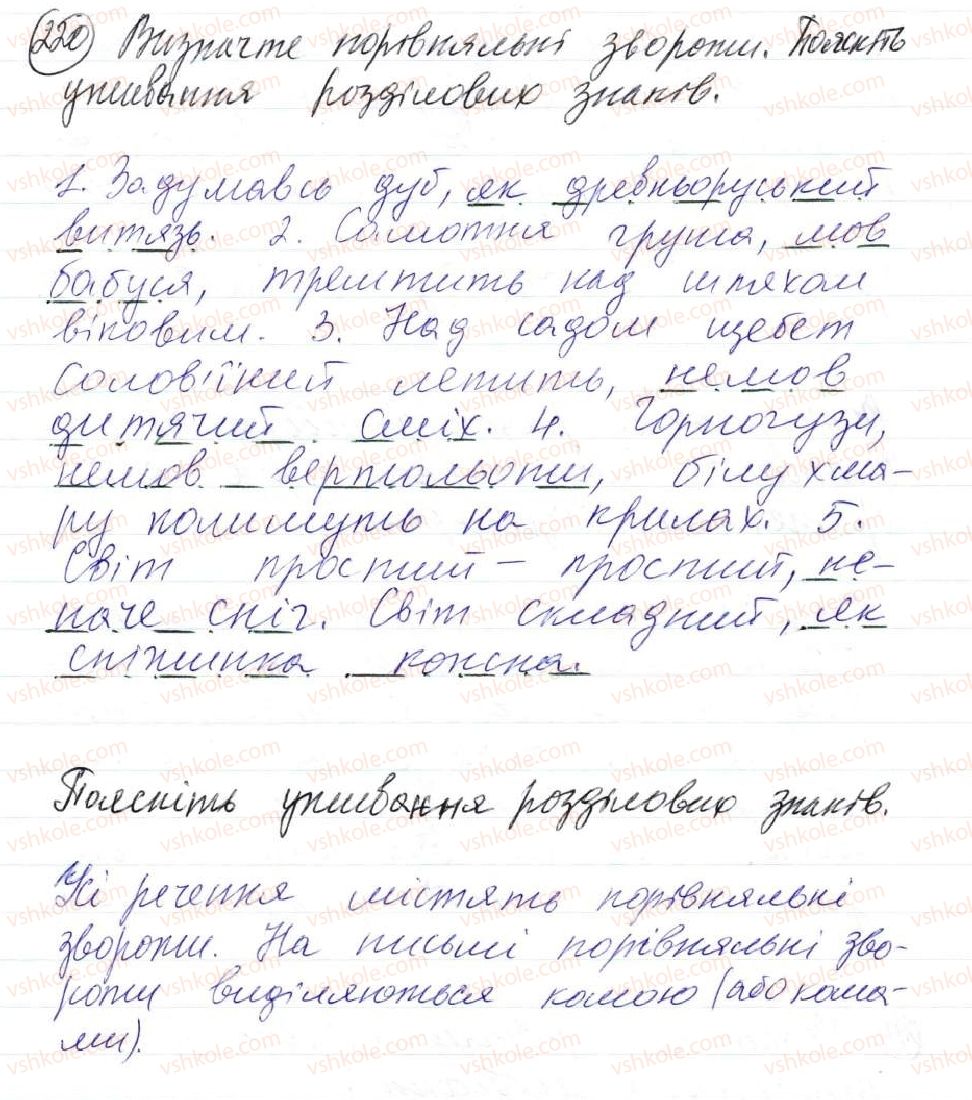 220 Визначте порівняльні звороти. Поясніть
уживання розділових знаків.
1. Задумавсь дуб, як древньоруський
витязь. 2. Самотня груша, мов
бабуся, тремтить над шляхом
віковим. 3. Над садом щебет
солов'їний летить, немов
дитячий сміх. 4. Горногузи,
немов вертольоти, білу хма-
ру полишуть на крилах. 5.
Світ простий – простий, не-
наче сніг. Світ складний, як
сніжинка кожна.
Поясніть уживання розділових знаків.
Усі речення містять порівняльні
звороти. На письмі порівняльні зво-
роти виділяються комою (або кома-
ми).